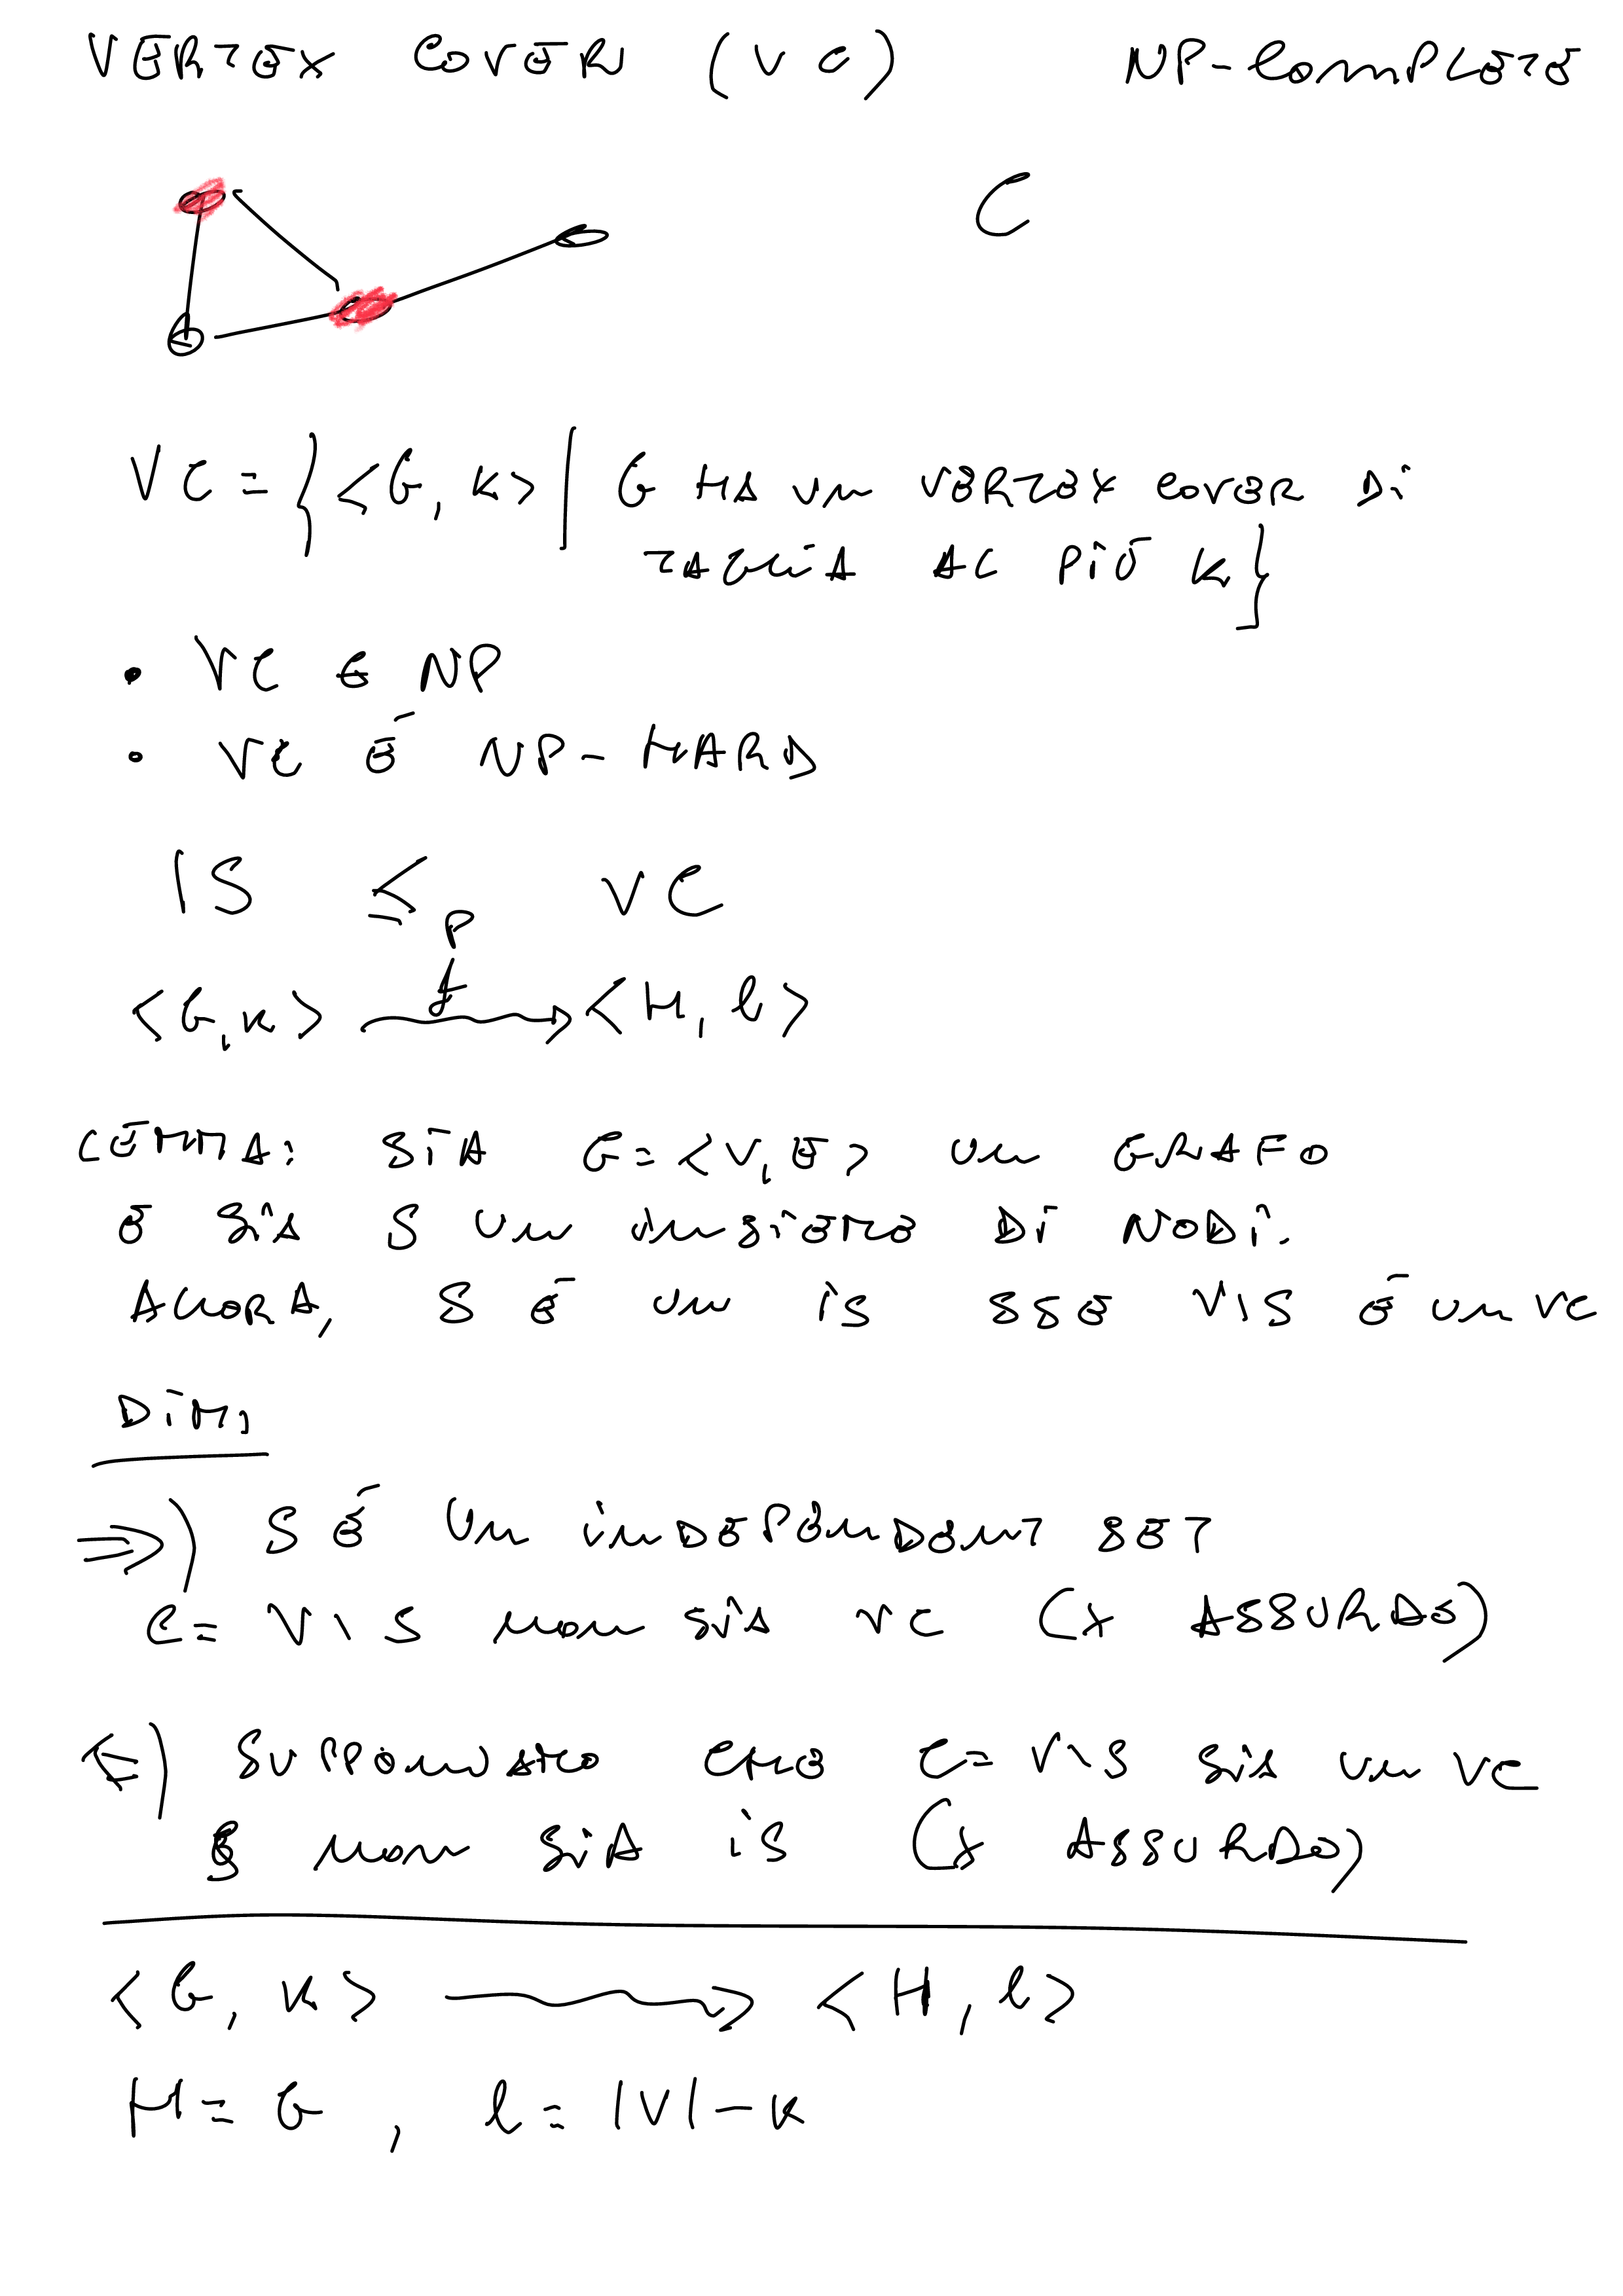 VERTEX COVER (VC) NP-COMPLETE
C
VC = { <G, k> | G HA UN VERTEX COVER DI
TAGLIA AL PIÙ k }
• VC ∈ NP
• VC È NP-HARD
IS ≤p VC
f
<G, k> → <H, l>
LEMMA: SIA G = <V, E> UN GRAFO
E SIA S UN INSIEME DI NODI.
ALLORA, S È UN IS SSE V\S È UN VC
DIM.
⇒) S È UN INDEPENDENT SET
C = V\S NON SIA VC (X ASSURDO)
⇐) SUPPONIAMO CHE C = V\S SIA UN VC
S NON SIA IS (X ASSURDO)
<G, k> → <H, l>
H = G , l = |V| - k